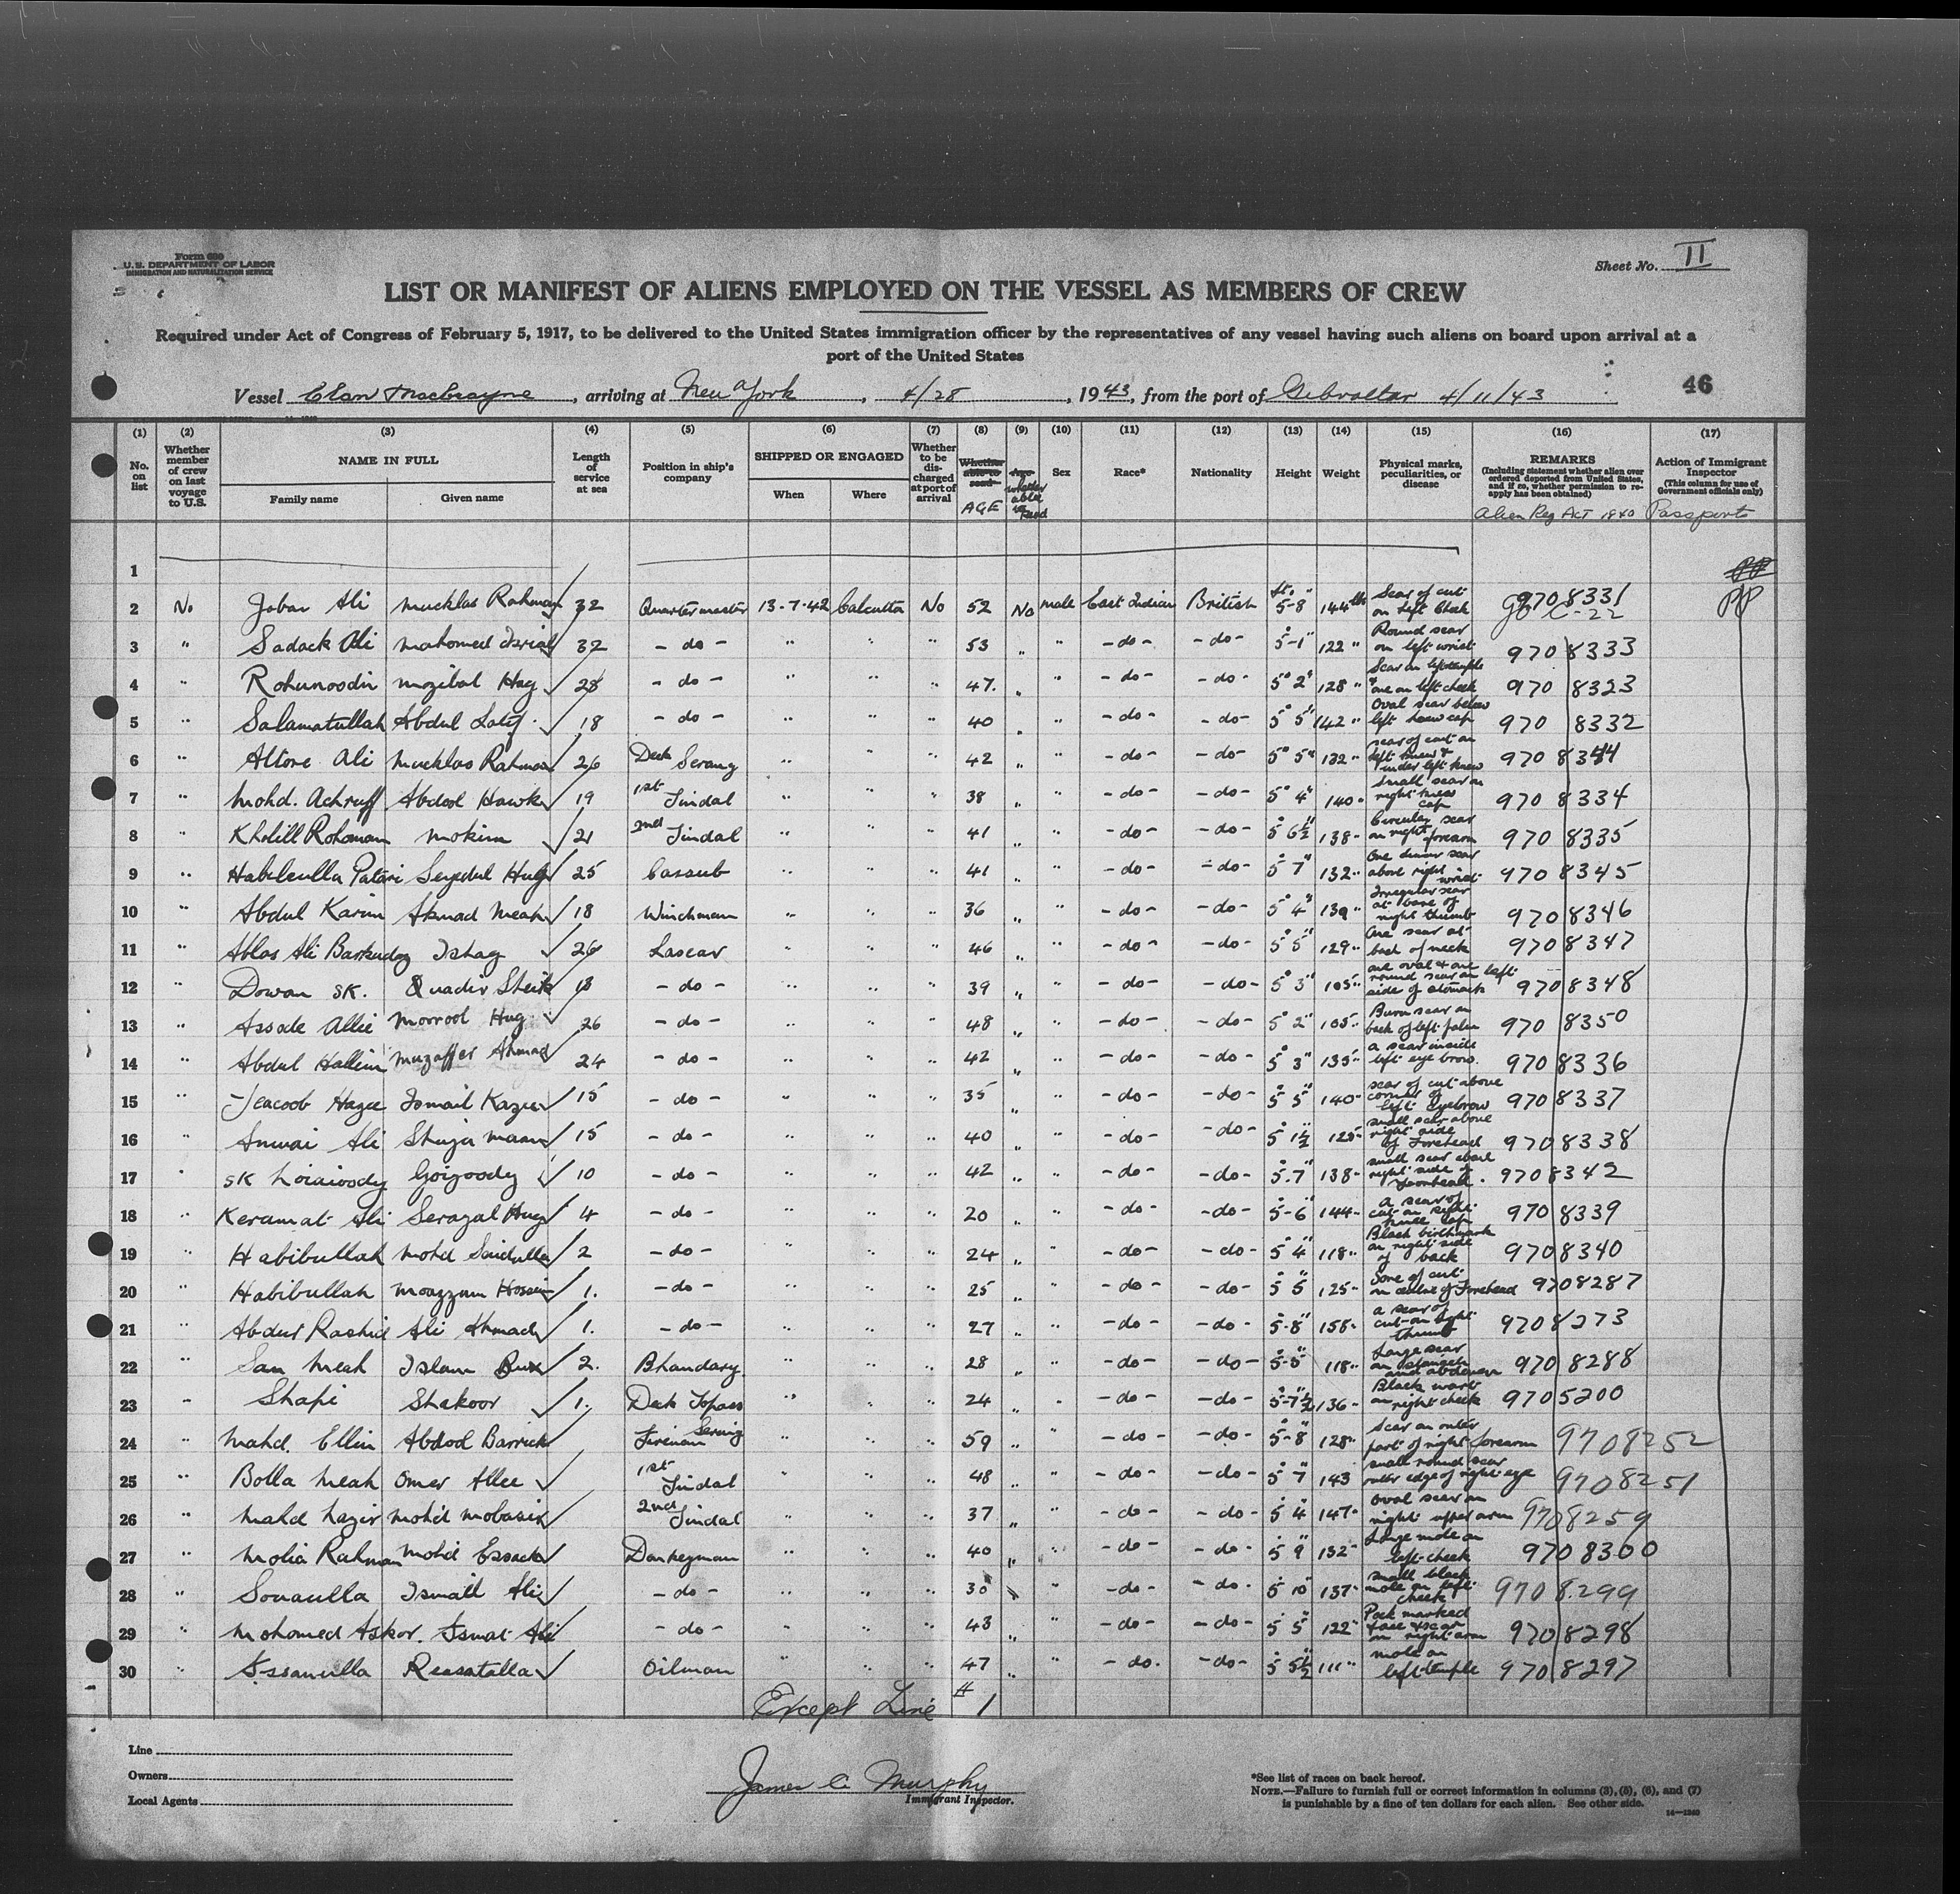 Form 689
U.S. DEPARTMENT OF LABOR
IMMIGRATION AND NATURALIZATION SERVICE
Sheet No. II
LIST OR MANIFEST OF ALIENS EMPLOYED ON THE VESSEL AS MEMBERS OF CREW
Required under Act of Congress of February 5, 1917, to be delivered to the United States immigration officer by the representatives of any vessel having such aliens on board upon arrival at a
port of the United States
46
Vessel Clan Macbrayne, arriving at New York, 4/28, 1943, from the port of Gibraltar 4/11/43
(1) (2) (3) (4) (5) (6) (7) (8) (9) (10) (11) (12) (13) (14) (15) (16) (17)
No. on list
Whether member of crew on last voyage to U.S.
NAME IN FULL
Family name
Given name
Length of service at sea
Position in ship's company
SHIPPED OR ENGAGED
When
Where
Whether to be discharged at port of arrival
Whether able to read AGE
Age whether able to read
Sex
Race*
Nationality
Height
Weight
Physical marks, peculiarities, or disease
REMARKS
(Including statement whether alien ever ordered deported from United States, and if so, whether permission to reapply has been obtained)
Alien Reg ACT 1940
Action of Immigrant Inspector
(This column for use of Government officials only)
Passports
1 PP
2 No Jobar Ali Mucklas Rahman 32 Quartermaster 13-7-42 Calcutta No 52 No male East Indian British 5-8 144 lbs Scar of cut on left cheek 9708331 C-22 PP
3 " Sadack Ali Mahomed 32 - do - " " " 53 " " - do - - do - 5-1" 122 " Round scar on left wrist 9708333
4 " Rohunoodin Mozibal Hag 28 - do - " " " 47. " " - do - - do - 5" 2" 128 " Scar on left temple & one on left cheek 970 8323
5 " Salamatullah Abdul Latif 18 - do - " " " 40 " " - do - - do - 5 5" 142 " Oval scar below left knee cap 970 8332
6 " Altore Ali Mucklas Rahman 26 Deck Serang " " " 42 " " - do - - do - 5" 5" 132 " scar of cut on left knee & under left knee 970 8344
7 " Mohd. Achruff Abdool Hawk 19 1st Tindal " " " 38 " " - do - - do - 5" 4" 140 " Small scar on right knee cap 970 8334
8 " Kholill Rohoman Mokim 21 2nd Tindal " " " 41 " " - do - - do - 5 6½" 138 " Circular scar on right forearm 970 8335
9 " Habibulla Patari Seyedul Hug 25 Cassub " " " 41 " " - do - - do - 5 7" 132 " One scar above right wrist 970 8345
10 " Abdul Karim Ahmad Meah 18 Winchman " " " 36 " " - do - - do - 5" 4" 139 " Irregular scar at base of right thumb 9708346
11 " Ablas Ali Barkudog Ishag 26 Lascar " " " 46 " " - do - - do - 5 5" 129 " One scar at back of neck 9708347
12 " Dowan SK. Quadir Sheik 18 - do - " " " 39 " " - do - - do - 5 3" 105 " one oval & one round scar on left side of stomach 9708348
13 " Assode Allie Moorool Hug 26 - do - " " " 48 " " - do - - do - 5 2" 105 " Burn scar on back of left palm 970 8350
14 " Abdul Hallim Muzaffer Ahmad 24 - do - " " " 42 " " - do - - do - 5 3" 135 " a scar inside left eye brow. 9708336
15 " Yeacoob Hazee Ismail Kazee 15 - do - " " " 35 " " - do - - do - 5 5" 140 " scar of cut above corner of left eyebrow 9708337
16 " Anwai Ali Shuja Maan 15 - do - " " " 40 " " - do - - do - 5 1½ 125 " small scar above right side of Forehead 9708338
17 " SK Goigoody 10 - do - " " " 42 " " - do - - do - 5.7" 138 " small scar above right side of Forehead. 9708342
18 " Keramat Ali Serazal Hug 4 - do - " " " 20 " " - do - - do - 5-6" 144 " a scar of cut on right knee cap 970 8339
19 " Habibullah Mohd Saidulla 2 - do - " " " 24 " " - do - - do - 5 4" 118 " Black birthmark on right side of back 9708340
20 " Habibullah Moazzam Hossein 1. - do - " " " 25 " " - do - - do - 5 5" 125 " of cut on centre of Forehead 9708287
21 " Abdur Rashid Ali Ahmad 1. - do - " " " 27 " " - do - - do - 5-8" 158 " a scar of cut on right thumb 9708273
22 " San Meah Islam Bux 2. Bhandary " " " 28 " " - do - - do - 5-5" 118 " Large scar on stomach and abdomen 970 8288
23 " Shapi Shakoor 1. Deck Topass " " " 24 " " - do - - do - 5-7½ 136 " Black wart on right cheek 9705200
24 " Mahd. Ellin Abdool Barrick Fireman Serang " " " 59 " " - do - - do - 5-8" 128 " Scar on outer part of right forearm 9708252
25 " Bolla Meah Omer Allee 1st Tindal " " " 48 " " - do - - do - 5 7" 143 small round scar outer edge of right eye 9708251
26 " Mahd Nazir Mohd Mobasir 2nd Tindal " " " 37 " " - do - - do - 5 4" 147 " Oval scar on right upper arm 9708259
27 " Molia Rahman Mohd Essack Donkeyman " " " 40 " " - do - - do - 5 9" 132 " Large mole on left cheek 9708300
28 " Sonaulla Ismail Ali - do - " " " 30 " " - do - - do - 5 10" 137 " small black mole on left cheek 9708299
29 " Mohomed Askor. Ismat Ali - do - " " " 43 " " - do - - do - 5 5" 122 " Pock marked face & scar on right arm 9708298
30 " Issanulla Reasatalla Oilman " " " 47 " " - do. - do - 5 5½ 111 " mole on left temple 9708297
Except Line # 1
Line
Owners
Local Agents
James C. Murphy
Immigrant Inspector.
*See list of races on back hereof.
NOTE.—Failure to furnish full or correct information in columns (3), (5), (6), and (7)
is punishable by a fine of ten dollars for each alien. See other side.